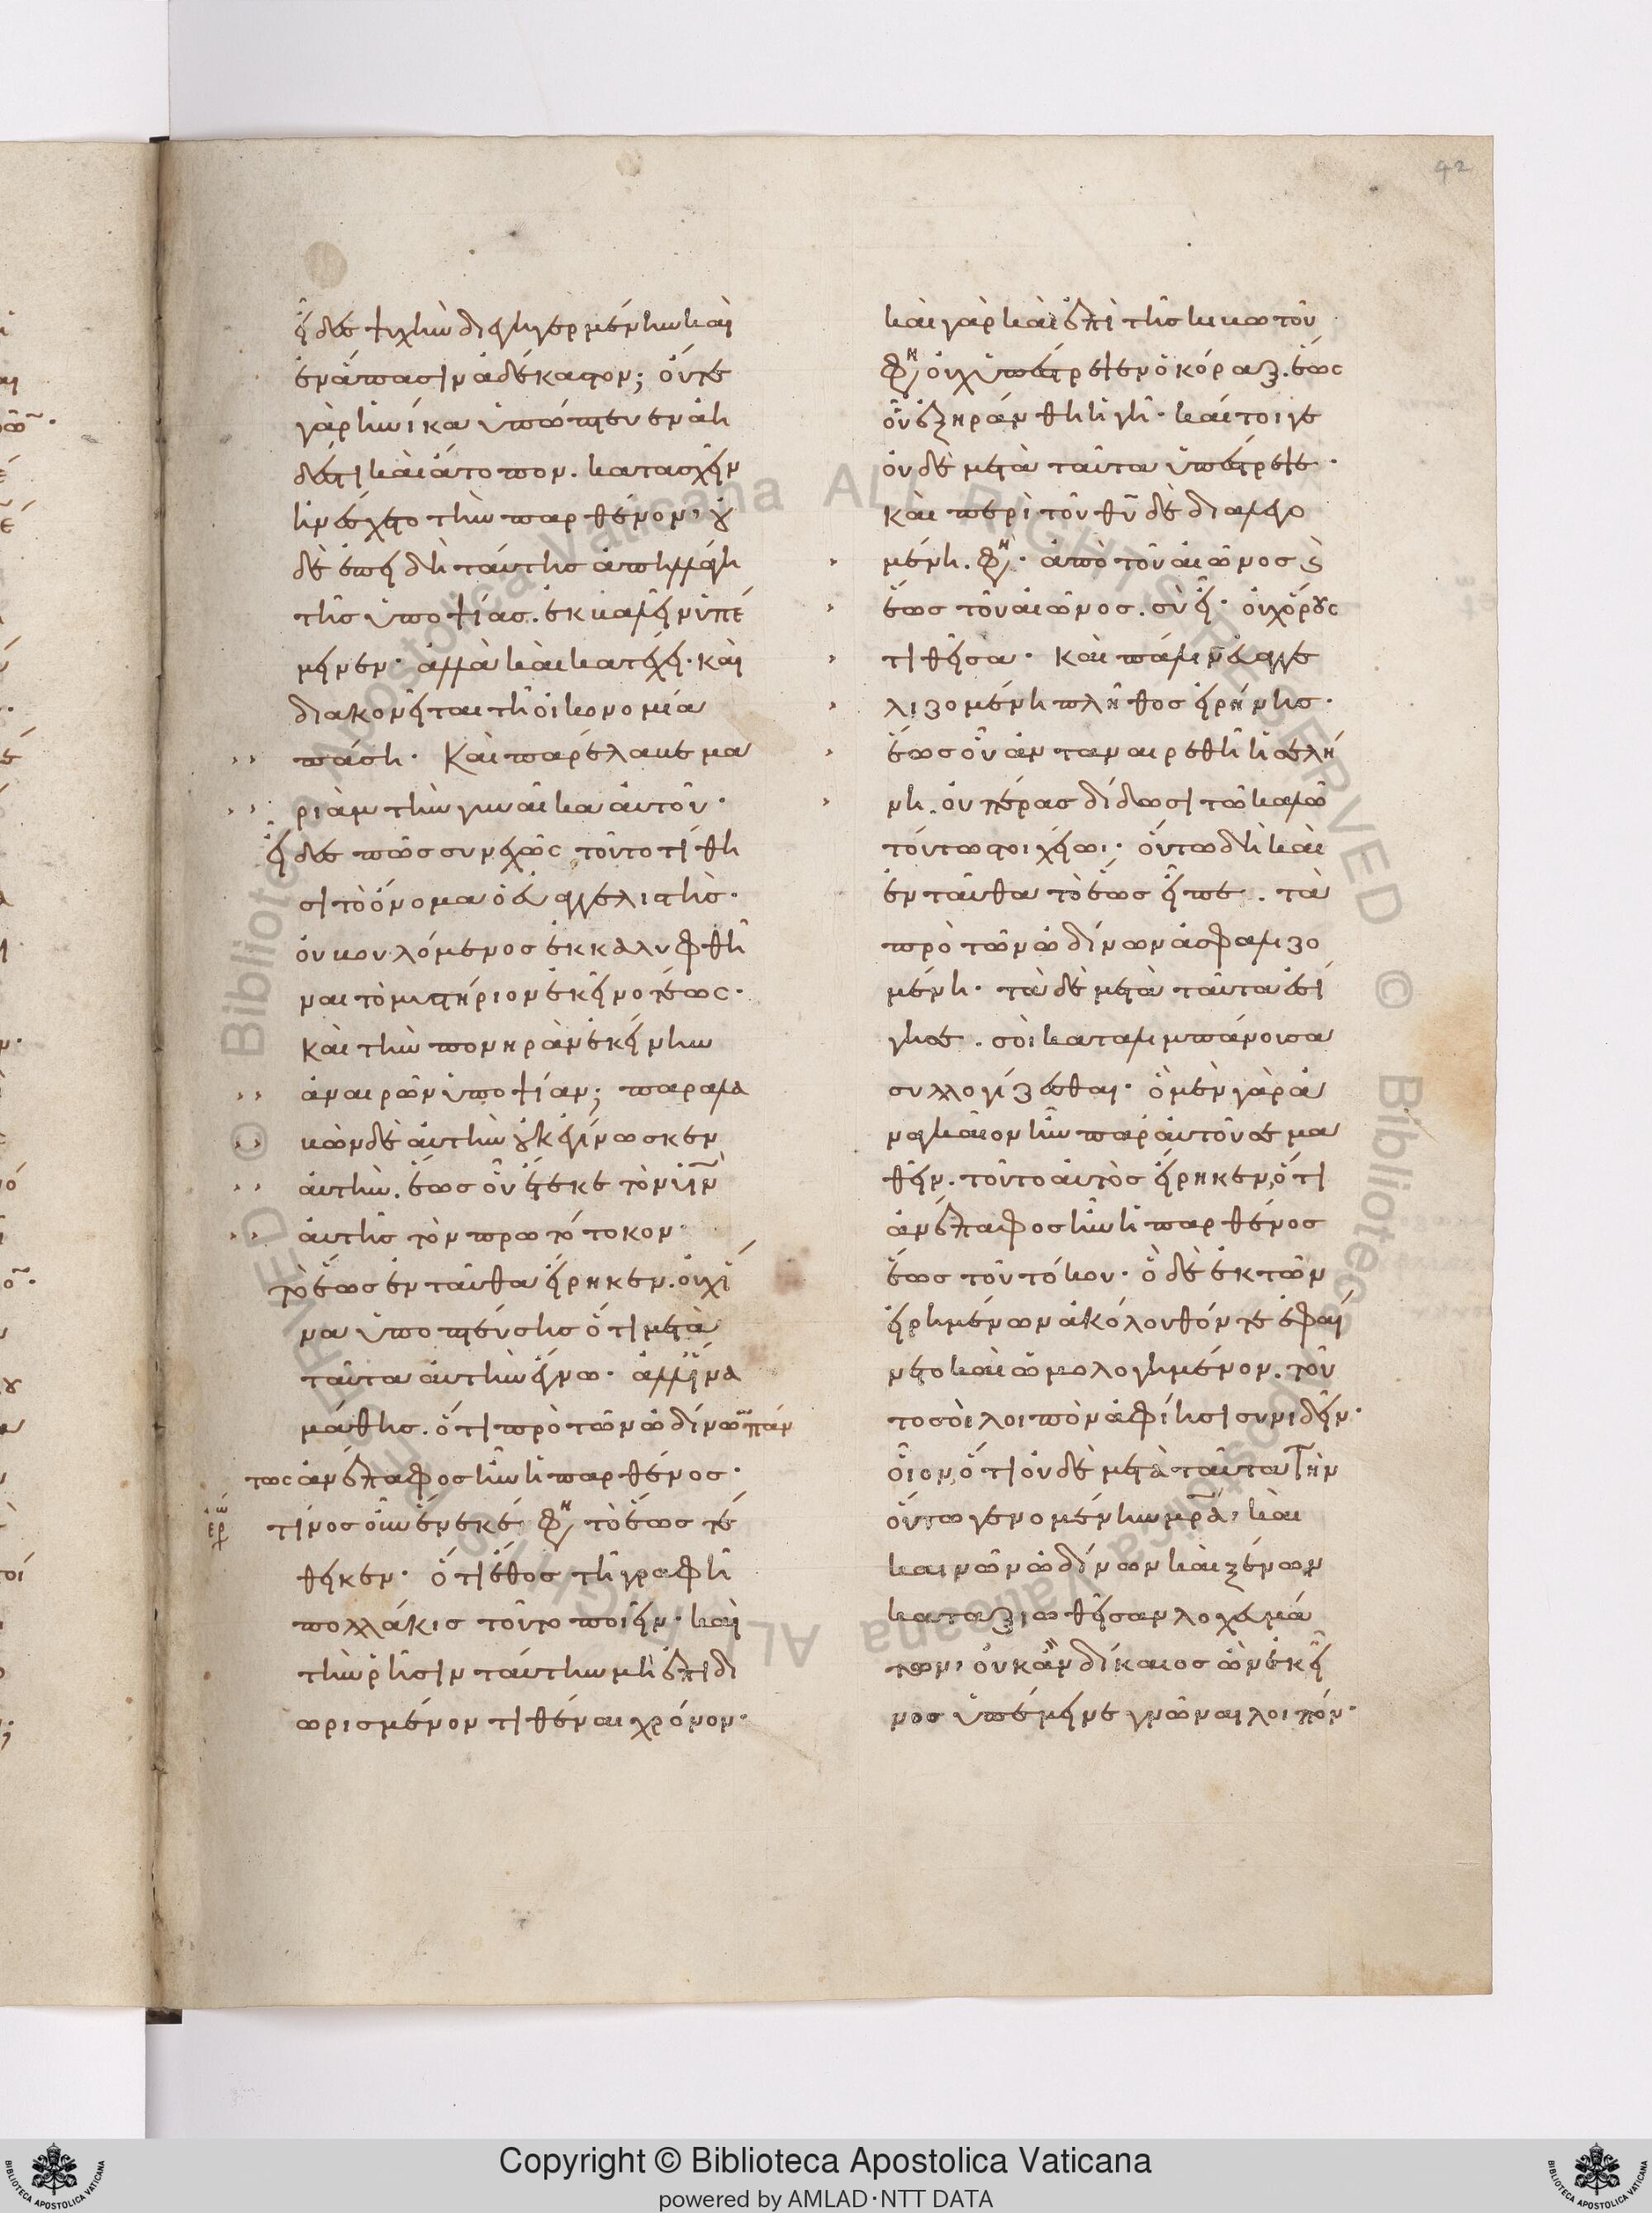 42
εἶδες ψυχὴν διεγηγερμένην καὶ
ἐν ἅπασιν ἀδέκαστον; οὔτε
γὰρ ἡνίκα ὑπώπτευεν ἀη
δές τι καὶ ἄτοπον. κατασχεῖν
ἠνέσχετο τὴν παρθένον, οὐ
δὲ ἐπειδὴ ταύτης ἀπηλλάγη
τῆς ὑποψίας. ἐκβαλεῖν ὑπέ
μεινεν· ἀλλὰ καὶ κατέχει· καὶ
διακονεῖται τῆ οἰκονομία
πάση· Καὶ παρέλαβε μα
ριὰμ τὴν γυναῖκα αὐτοῦ·
εἶδες πῶς συνεχῶς τοῦτο τίθη
σι τὸ ὄνομα ὁ εὐαγγελιστὴς·
οὐ βουλόμενος ἐκκαλυφθῆ
ναι τὸ μυστήριον ἐκεῖνο τέως·
καὶ τὴν πονηρὰν ἐκείνην
ἀναιρῶν ὑποψίαν; παραλα
βὼν δὲ αὐτὴν οὐκ ἐγίνωσκεν
αὐτὴν. ἕως οὗ ἔτεκε τὸν υἱὸν
αὐτῆς τὸν πρωτότοκον·
τὸ ἕως ἐνταῦθα εἴρηκεν. οὐχ ἵ
να ὑποπτεύσης ὅτι μετὰ
ταῦτα αὐτὴν ἔγνω· ἀλλ' ἵνα
μάθης. ὅτι πρὸ τῶν ὠδίνων πάν
τως ἀνέπαφος ἦν ἡ παρθένος·
τίνος οὖν ἕνεκέ φη τὸ ἕως τέ
θεικεν· ὅτι ἔθος τῆ γραφῆ
πολλάκις τοῦτο ποιεῖν· καὶ
τὴν ῥῆσιν ταύτην μὴ ἐπὶ δι
ωρισμένον τιθέναι χρόνον·
καὶ γὰρ καὶ ἐπὶ τῆς κιβωτοῦ
φη οὐχ ὑπέστρεψεν ὁ κόραξ. ἕως
οὗ ἐξηράνθη ἡ γῆ· καίτοιγε
οὐδὲ μετὰ ταῦτα ὑπέστρεψε·
καὶ περὶ τοῦ θυ δὲ διαλεγο
μένη. φη· ἀπὸ τοῦ αἰῶνος καὶ
ἕως τοῦ αἰῶνος. σὺ εἶ· οὐχ ὅρους
τιθεῖσα· Καὶ πάλιν εὐαγγε
λιζομένη πλῆθος εἰρήνης·
ἕως οὗ ἀνταναιρεθῆ ἡ σελή
νη. οὐ πέρας δίδωσι τῶ καλῶ
τούτω στοιχείω· οὕτω δὴ καὶ
ἐνταῦθα τὸ ἕως εἶπε. τὰ
πρὸ τῶν ὠδίνων ἀσφαλιζο
μένη· τὰ δὲ μετὰ ταῦτα ἐσί
γησε. σοὶ καταλιμπάνουσα
συλλογίζεσθαι· ὃ μὲν γὰρ ἀ
ναγκαῖον ἦν παρ' αὐτοῦ σε μα
θεῖν. τοῦτο αὐτὸς εἴρηκεν, ὅτι
ἀνέπαφος ἦν ἡ παρθένος
ἕως τοῦ τόκου· ὃ δὲ ἐκ τῶν
εἰρημένων ἀκόλουθόν τε ἐφαί
νετο καὶ ὡμολογημένον. τοῦ
το σοὶ λοιπὸν ἀφίησι συνιδεῖν·
οἷον, ὅτι οὐδὲ μετὰ ταῦτα τὴν
οὕτω γενομένην μρα, καὶ
καινῶν ὠδίνων καὶ ξένων
καταξιωθεῖσαν λοχευμά
των, οὐκ ἂν δίκαιος ὢν ἐκεῖ
νος ὑπέμεινε γνῶναι λοιπόν·
Copyright © Biblioteca Apostolica Vaticana
powered by AMLAD·NTT DATA